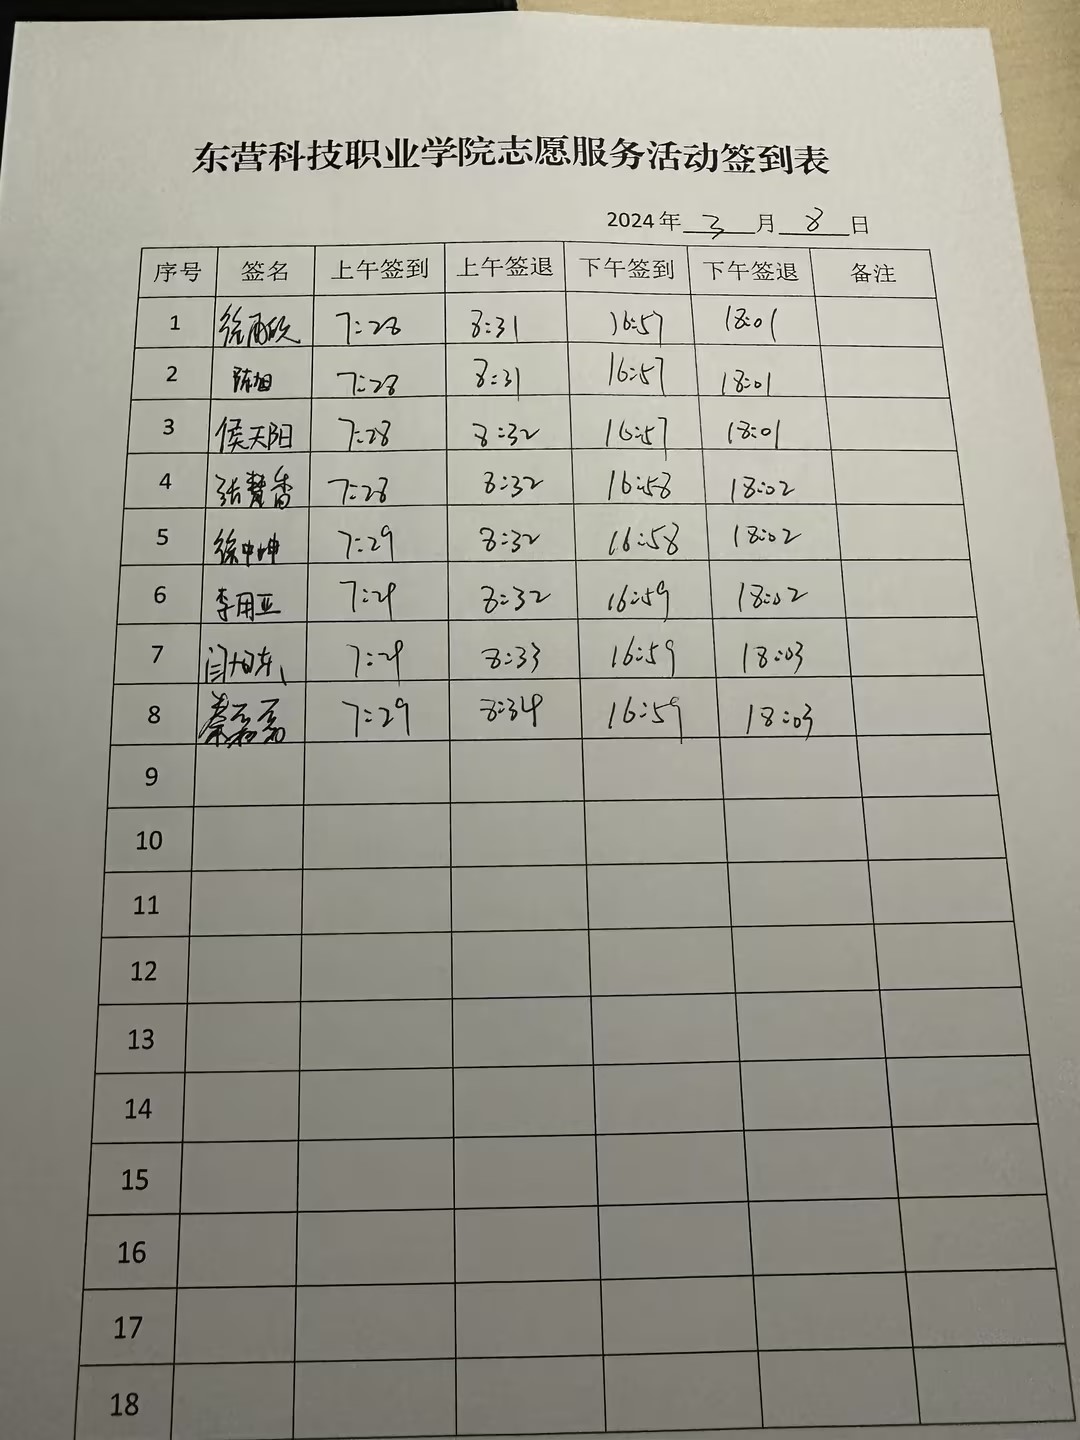 东营科技职业学院志愿服务活动签到表
2024年 3 月 8 日
序号 签名 上午签到 上午签退 下午签到 下午签退 备注
1 7:28 8:31 16:57 18:01
2 陈旭 7:28 8:31 16:57 18:01
3 侯天阳 7:28 8:32 16:57 18:01
4 张慧香 7:28 8:32 16:58 18:02
5 徐中坤 7:29 8:32 16:58 18:02
6 李用亚 7:29 8:32 16:59 18:02
7 7:29 8:33 16:59 18:03
8 秦磊磊 7:29 8:34 16:59 18:03
9
10
11
12
13
14
15
16
17
18